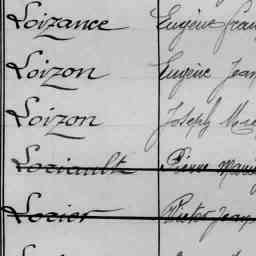 Loizance Eugène
Loizon Eugène Jean
Loizon Joseph
Loriault Pierre Marie
Lorier Victor Jean